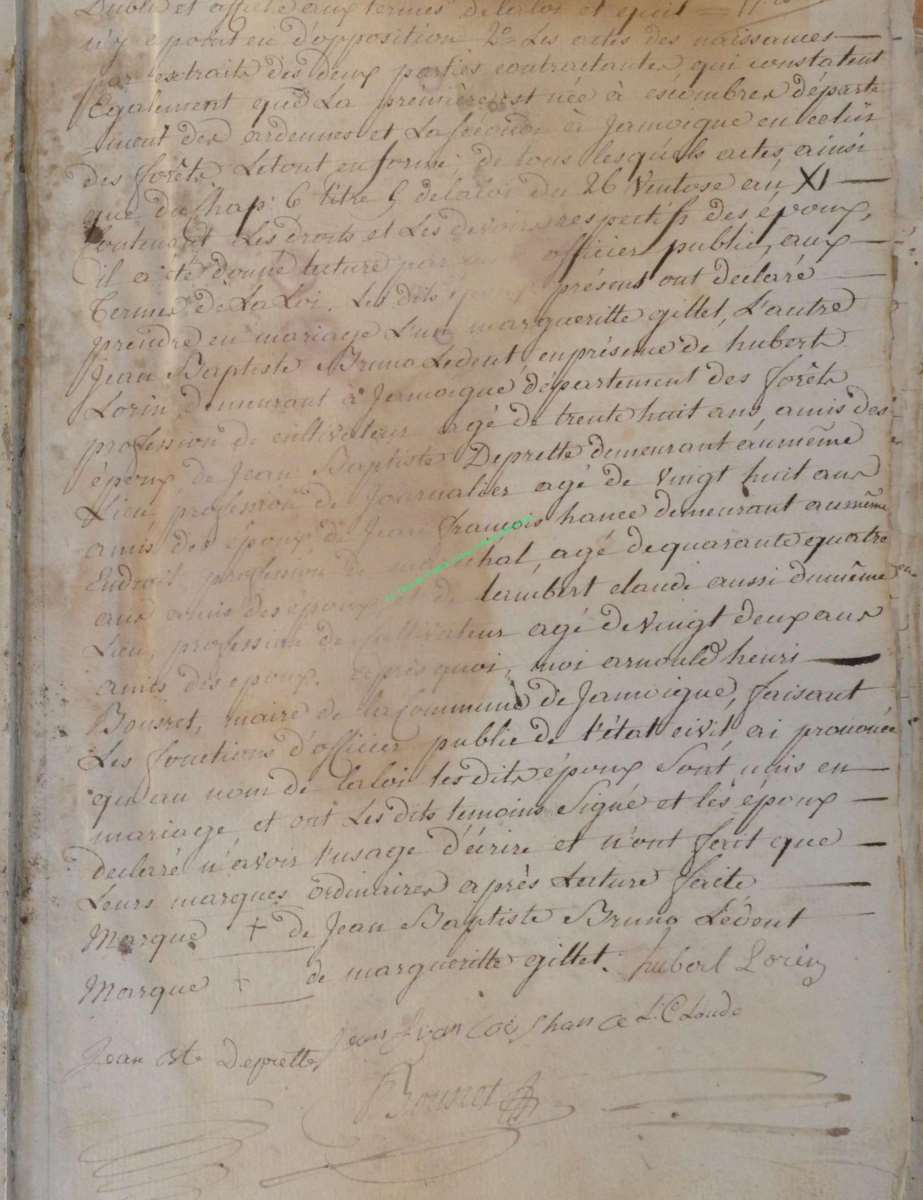 Publié et affiché aux termes de la loi et quil
n'y a point eu d'opposition 2º Les actes des naissances
par extraits des deux parties contractantes qui constatent
Également que La première est née à escombres départe
ment des ardennes et La seconde à Jamoigne en celui
des forêts Le tout en forme : de tous lesquels actes, ainsi
que du Chap: 6 titre 5 de la loi du 26 Ventose an XI
Contenant Les droits et Les devoirs respectifs des époux,
il a été donné lecture par officier public, aux
Termes de La Loi. Les dits présens ont declaré
prendre en mariage L'un margueritte gillet, L'autre
Jean Baptiste Bruno Ledent, en présence de hubert
Lorin demeurant à Jamoigne, département des forêts
profession de cultivateur agé de trente huit ans amis des
époux de Jean Baptiste Deprette demeurant au même
Lieu, profession de Journalier agé de vingt huit ans
amis des époux de Jean françois hance demeurant au même
Endroit profession de agé de quarante quatre
ans amis des époux et de Lambert claude aussi du même
Lieu, profession de cultivateur agé de vingt deux ans
amis des époux. après quoi, moi arnould henri
Bousret, maire de la commune de Jamoigne, faisant
Les fonctions d'officier public de l'état civil ai prononcé
qu'au nom de la loi les dits époux sont unis en
mariage, et ont Les dits temoins Signé et lès époux
declaré n'avoir l'usage d'écrire et n'ont fait que
Leurs marques ordinaires après Lecture faite
Marque + de Jean Baptiste Bruno Lédent
Marque + de margueritte gillet. hubert Lorin
Jean francoi hance L. Claude
Jean Bte Deprette
Bousret